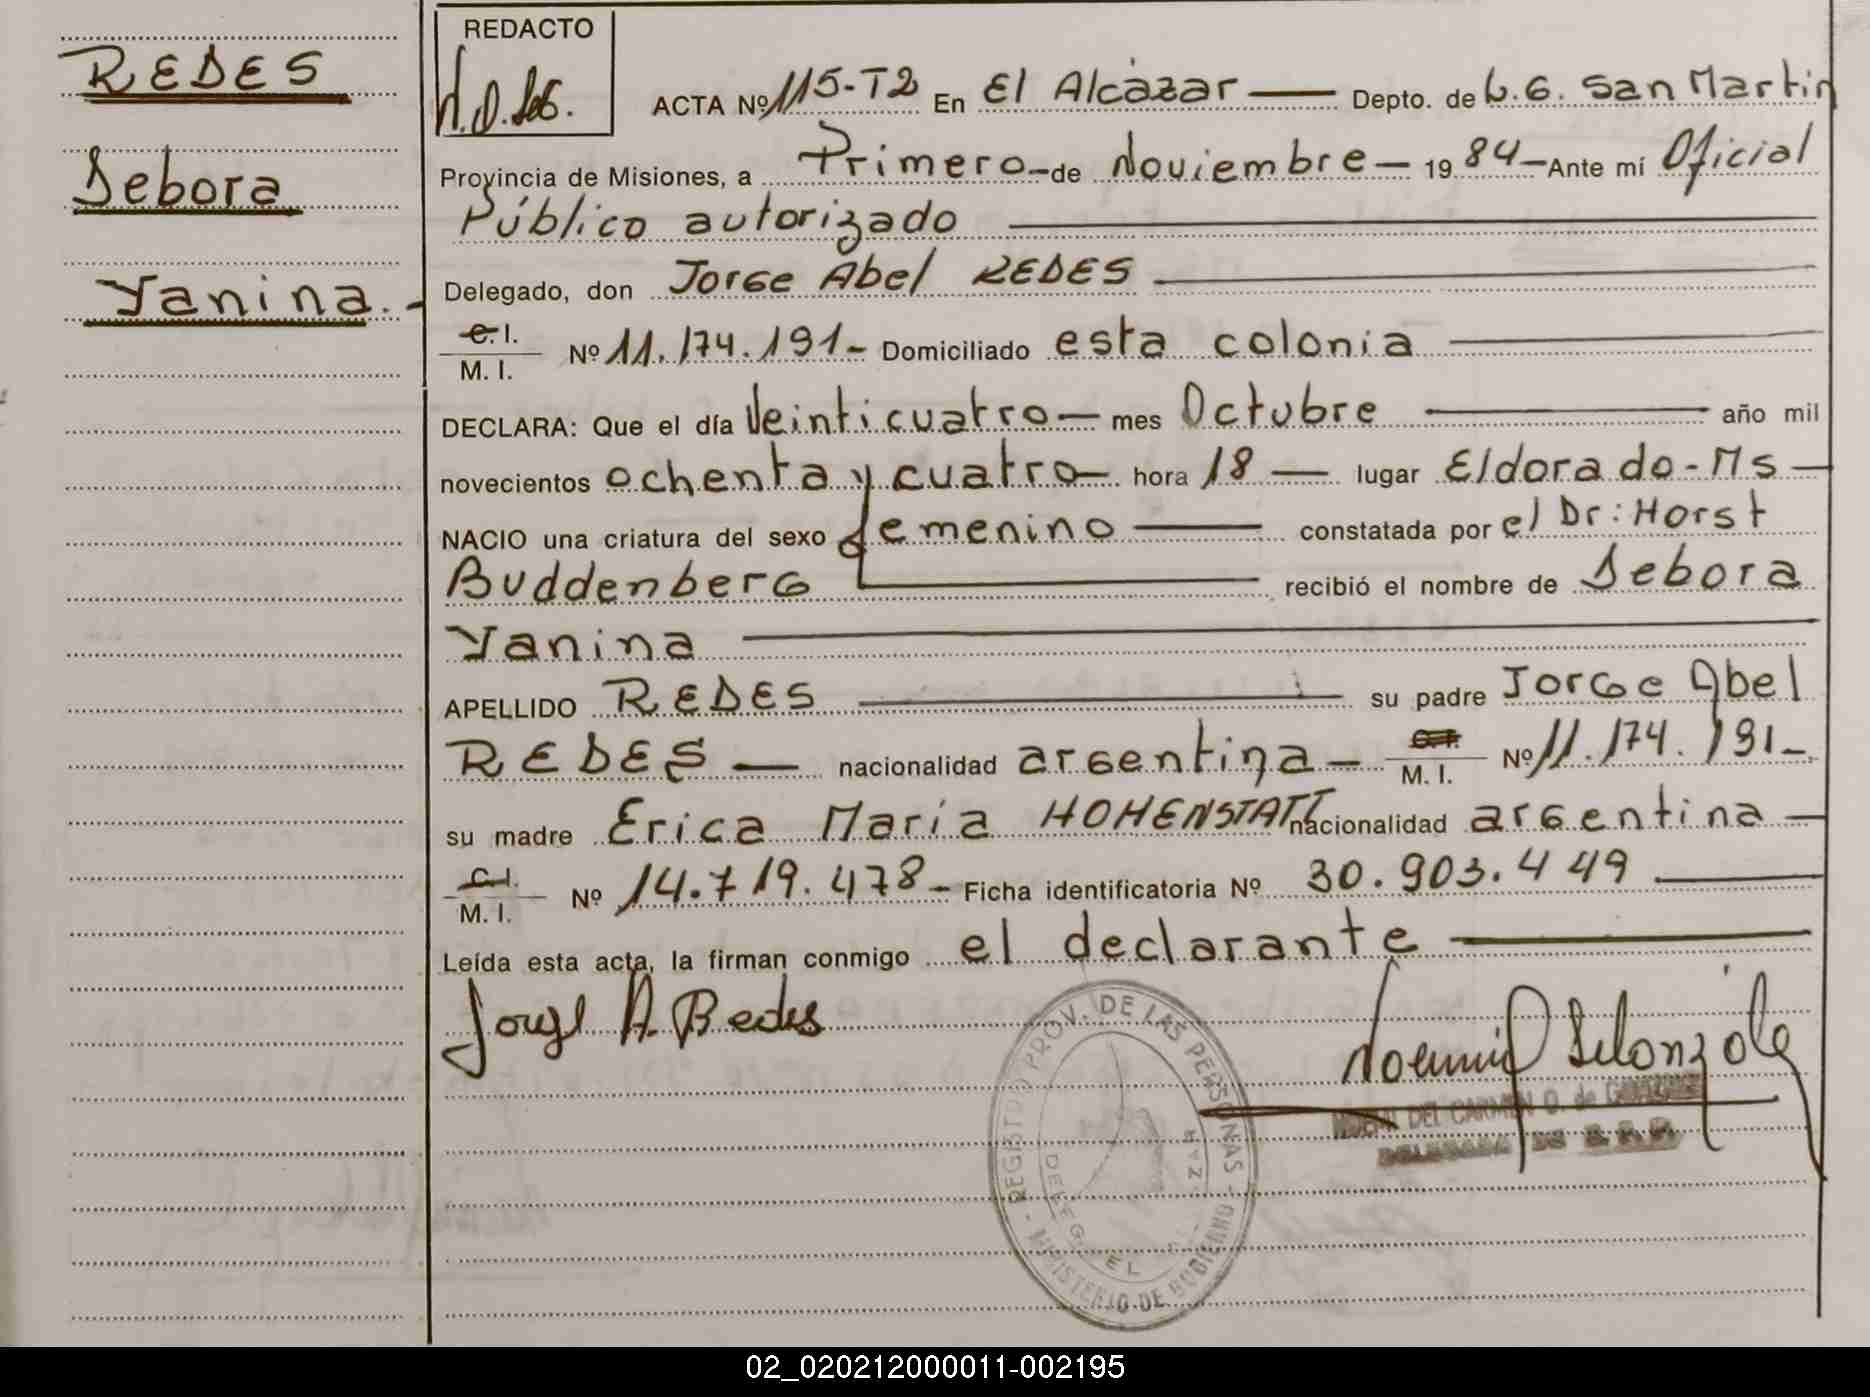 REDES
Debora
Yanina.-
REDACTO
ACTA Nº 115-T2 En El Alcázar Depto. de L.G. San Martin
Provincia de Misiones, a Primero- de Noviembre- 1984- Ante mí Oficial
Público autorizado
Delegado, don Jorge Abel REDES
C. I.
M. I. Nº 11.174.191- Domiciliado esta colonia
DECLARA: Que el día Veinticuatro- mes Octubre año mil
novecientos ochenta y cuatro- hora 18 - lugar Eldorado-Ms-
NACIO una criatura del sexo femenino constatada por el Dr: Horst
Buddenberg recibió el nombre de Debora
Yanina
APELLIDO REDES su padre Jorge Abel
REDES - nacionalidad argentina - C.I. M. I. Nº 11.174.191-.
su madre Erica María HOHENSTATT nacionalidad argentina -
C.I.
M. I. Nº 14.719.478- Ficha identificatoria Nº 30.903.449
Leída esta acta, la firman conmigo el declarante
Jorge A. Redes
REGISTRO PROV. DE LAS PERSONAS - MINISTERIO DE GOBIERNO -
DEL CARMEN O. de
DELEGADA DE R.P.P.
02_020212000011-002195